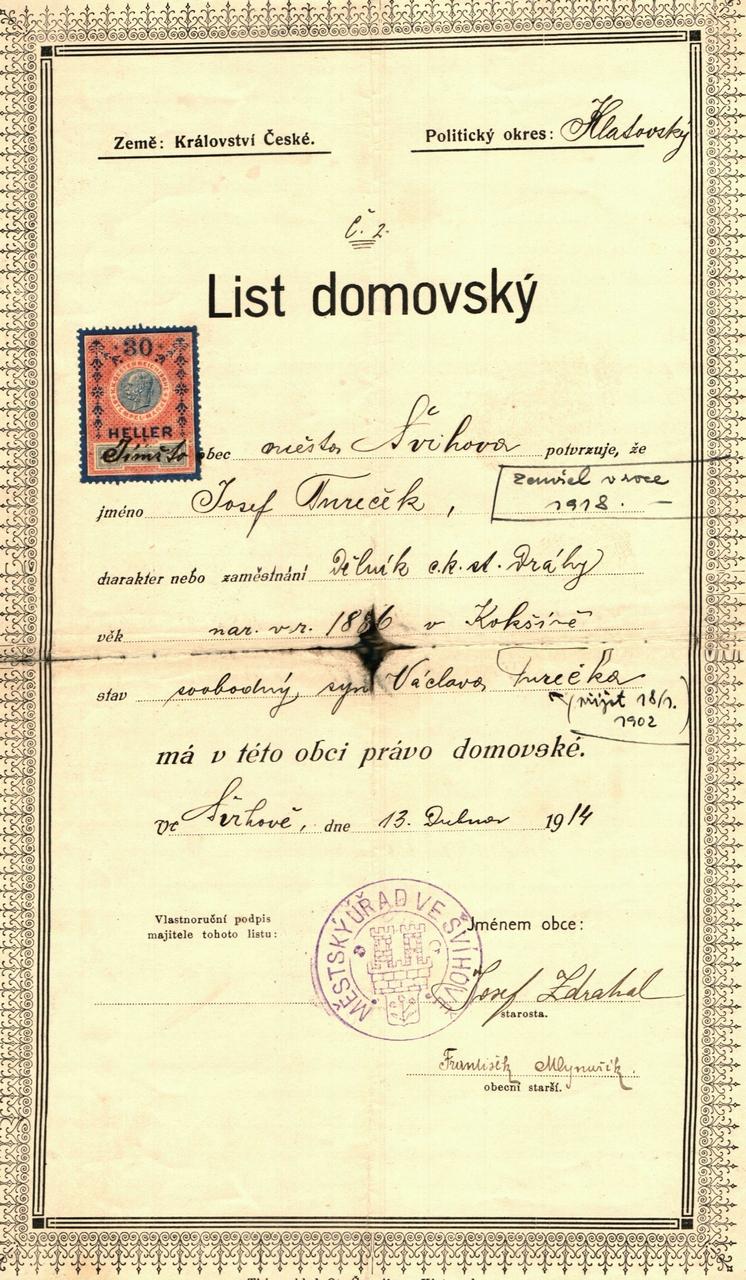 Země: Království České. Politický okres: Klatovský
Č. 2.
List domovský
30
HELLER
Tímto obec města Švihova potvrzuje, že
jméno Josef Tureček,
zemřel v roce
1918. —
charakter nebo zaměstnání Dělník c.k. st. Dráhy
věk nar. v r. 1886 v Kokšíně
stav svobodný, syn Václava Turečka
18/1.
1902
má v této obci právo domovské.
Ve Švihově, dne 13. Dubna 1914
Vlastnoruční podpis
majitele tohoto listu:
Jménem obce:
MĚSTSKÝ ÚŘAD VE ŠVIHOVĚ
Josef Zdrahal
starosta.
František Mlynařík.
obecní starší.